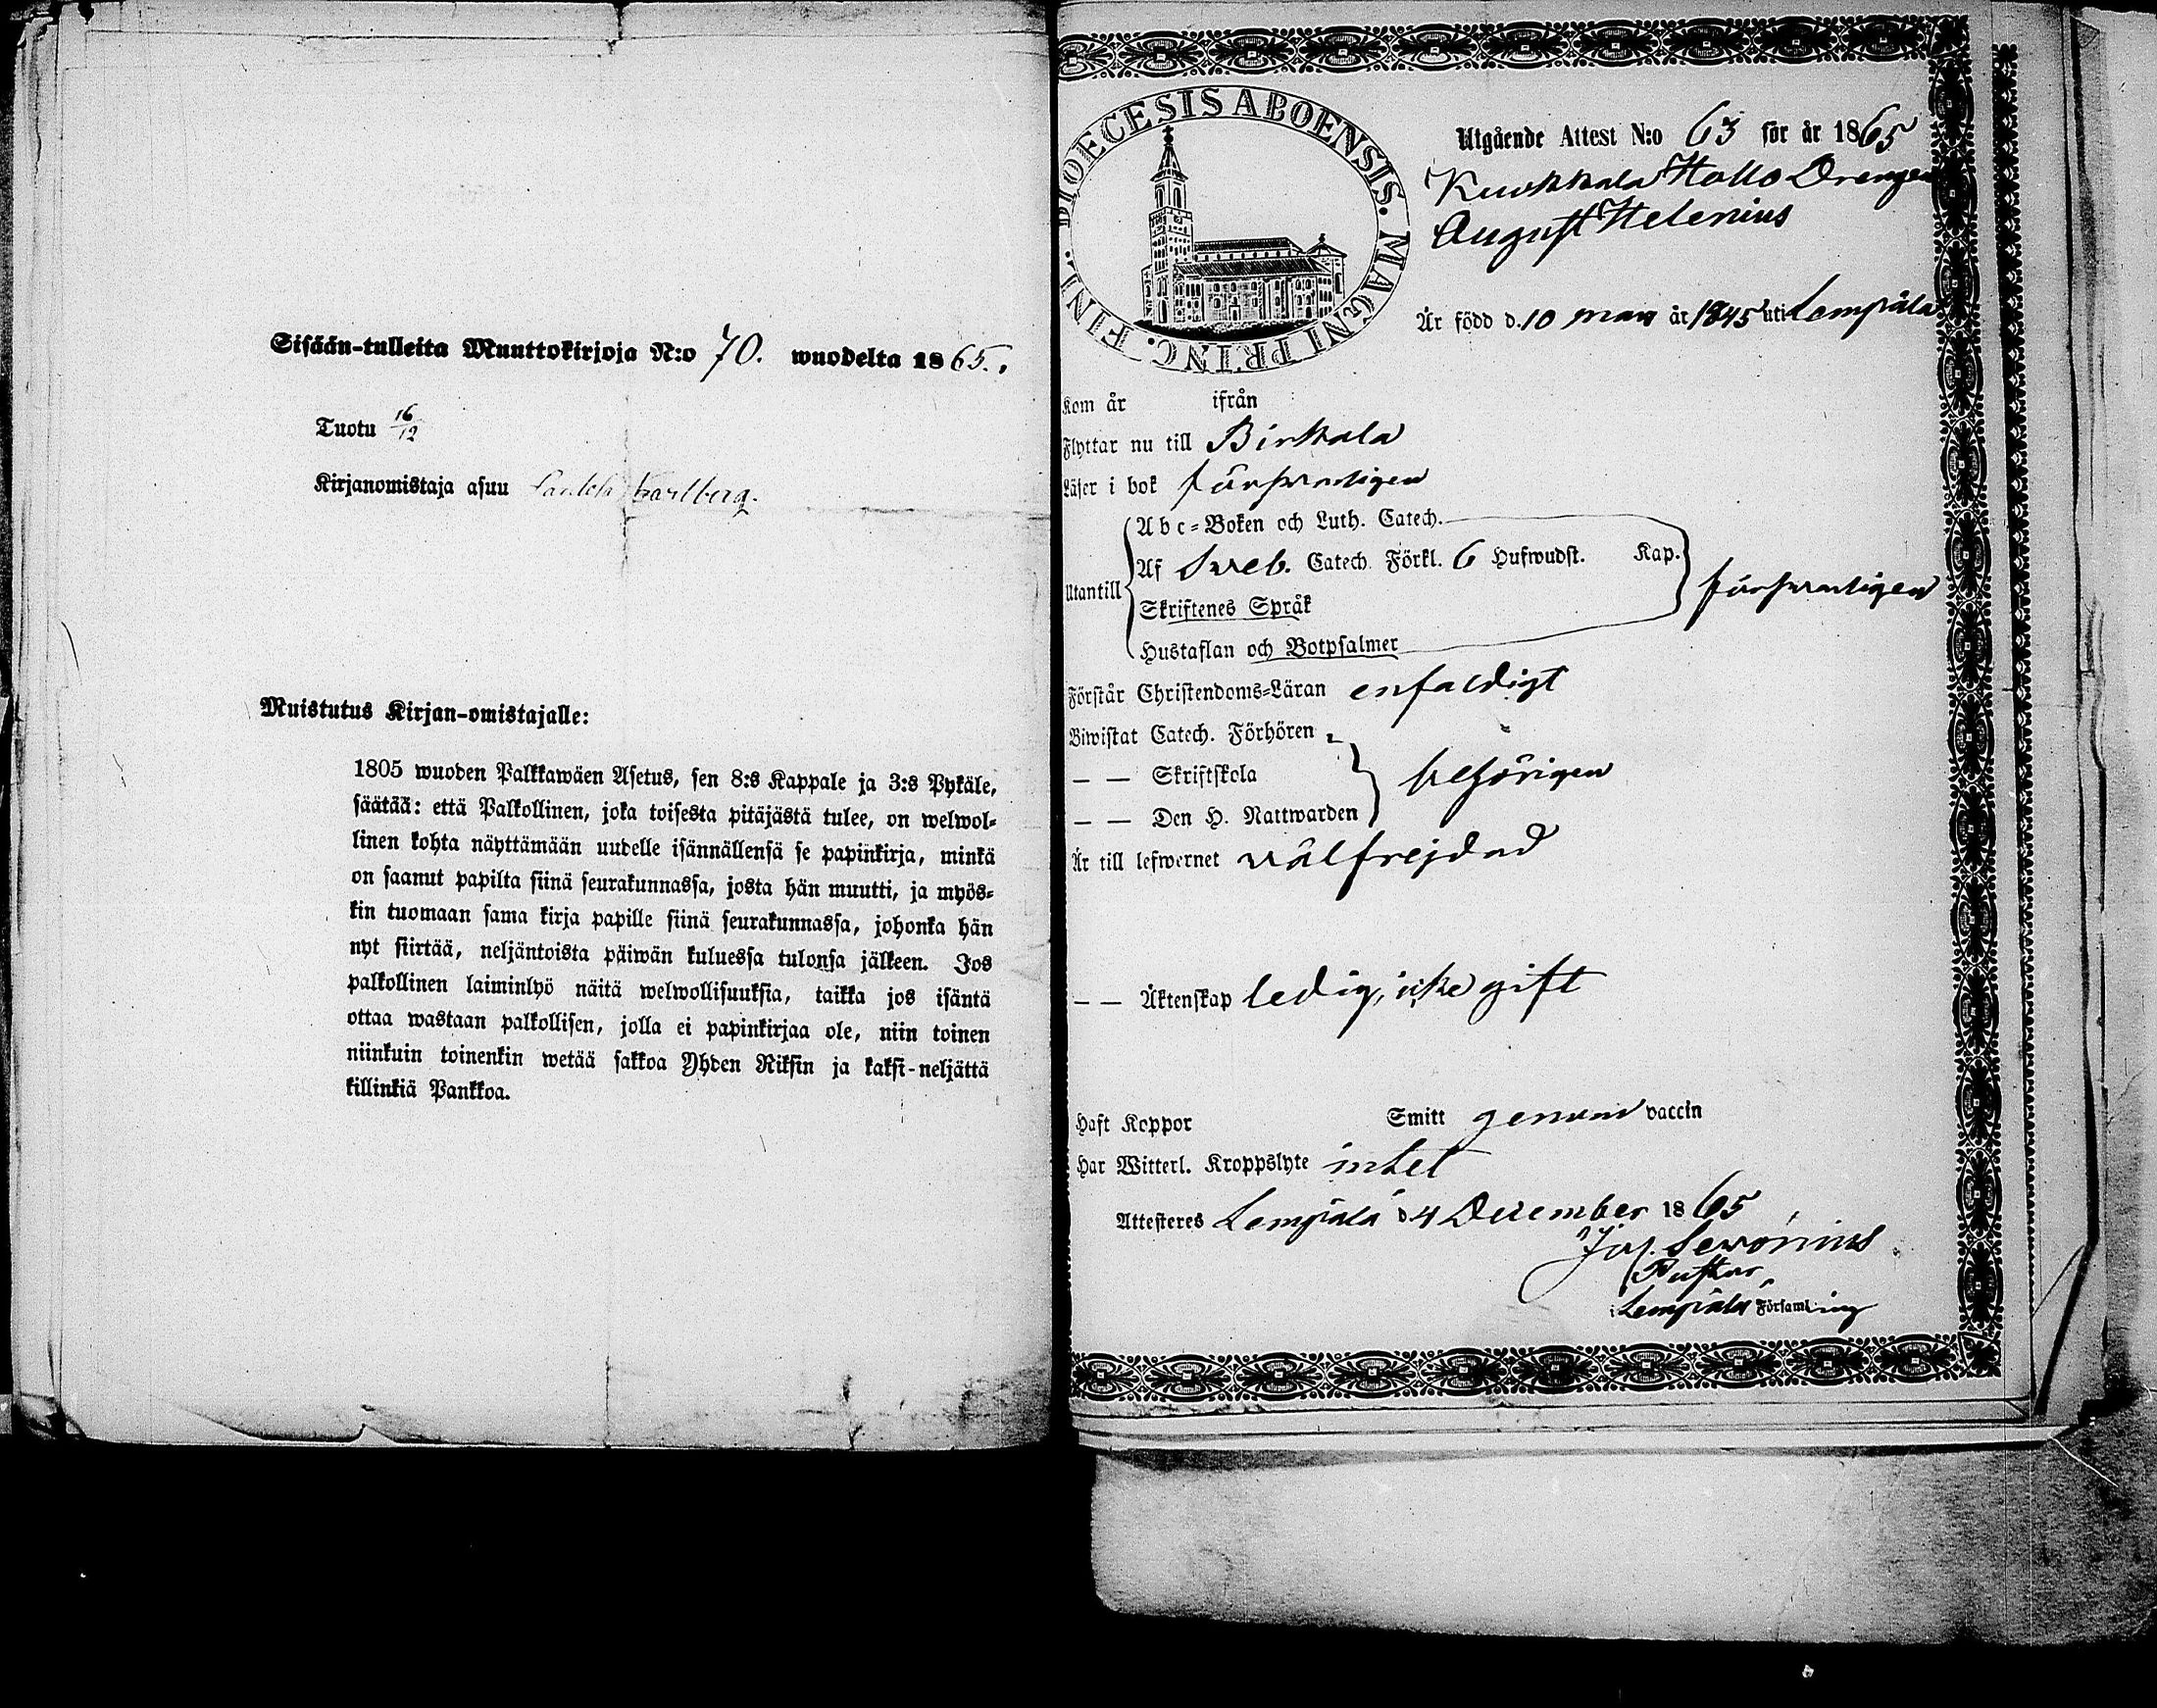 Sisään-tulleita Muuttokirjoja N:o 70. wuodelta 1865.
Tuotu 16/12
Kirjanomistaja asuu Carlberg.
Muistutus Kirjan-omistajalle:
1805 wuoden Palkkawäen Asetus, sen 8:s Kappale ja 3:s Pykäle,
säätää: että Palkollinen, joka toisesta pitäjästä tulee, on welwol-
linen kohta näyttämään uudelle isännällensä se papinkirja, minkä
on saanut papilta siinä seurakunnassa, josta hän muutti, ja myös-
kin tuomaan sama kirja papille siinä seurakunnassa, johonka hän
nyt siirtää, neljäntoista päiwän kuluessa tulonsa jälkeen. Jos
palkollinen laiminlyö näitä welwollisuuksia, taikka jos isäntä
ottaa wastaan palkollisen, jolla ei papinkirjaa ole, niin toinen
niinkuin toinenkin wetää sakkoa Yhden Riksin ja kaksi-neljättä
killinkiä Pankkoa.
DIOECESIS ABOENSIS. MAGNI PRINC. FINL.
Utgående Attest N:o 63 för år 1865
Kuokkala Hollo Drengen
August Helenius
Är född d. 10 mars år 1845 uti Lempiäla
Kom år ifrån
Flyttar nu till Birkala
Läser i bok försvarligen
Utantill
Abc-Boken och Luth. Catech.
Af Sveb. Catech. Förkl. 6 Hufwudst. Kap.
Skriftenes Språk
Hustaflan och Botpsalmer
försvarligen
Förstår Christendoms-Läran enfaldigt
Biwistat Catech. Förhören
— — Skriftskola behörigen
— — Den H. Nattwarden
Är till lefwernet välfrejdad
— — Äktenskap ledig, icke gift
Haft Koppor Smitt genuin vaccin
Har Witterl. Kroppslyte intet
Attesteres Lempiälä d 4 December 1865
Jos. Serónius
Pastor
i Lempiälä Församling